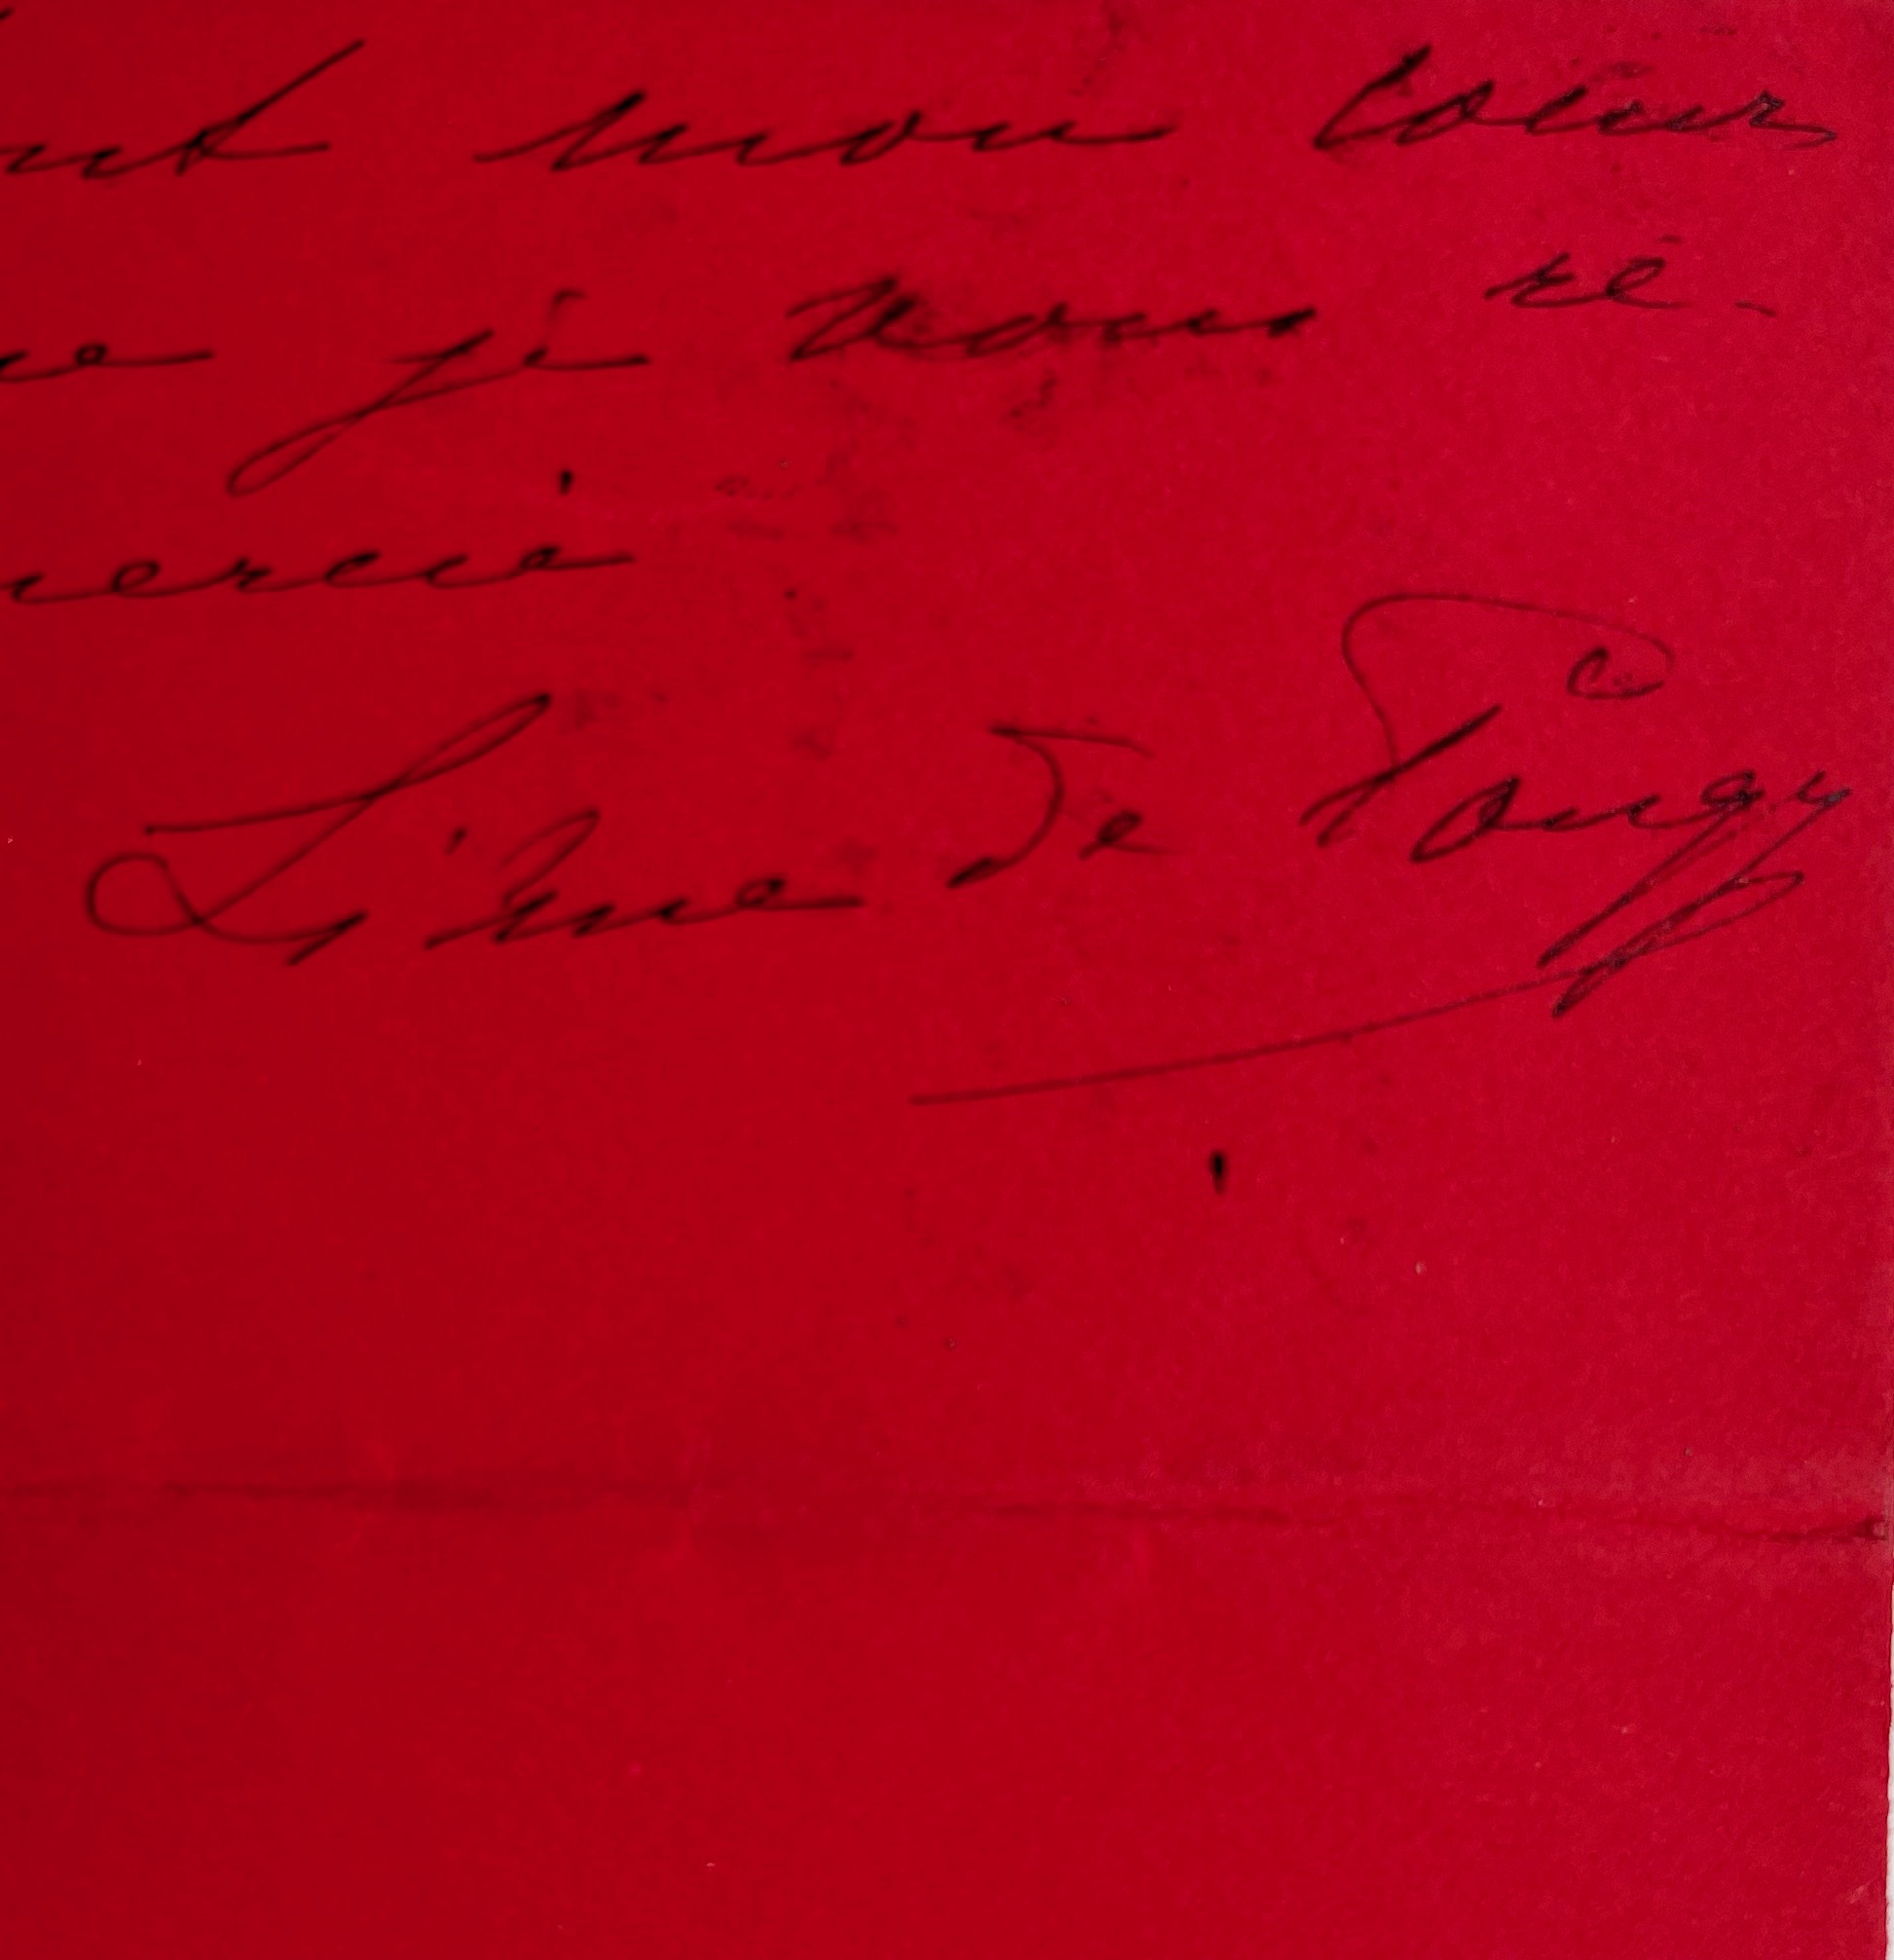 nt mon coeur
ue je vous re-
mercie
Liane de Pougy